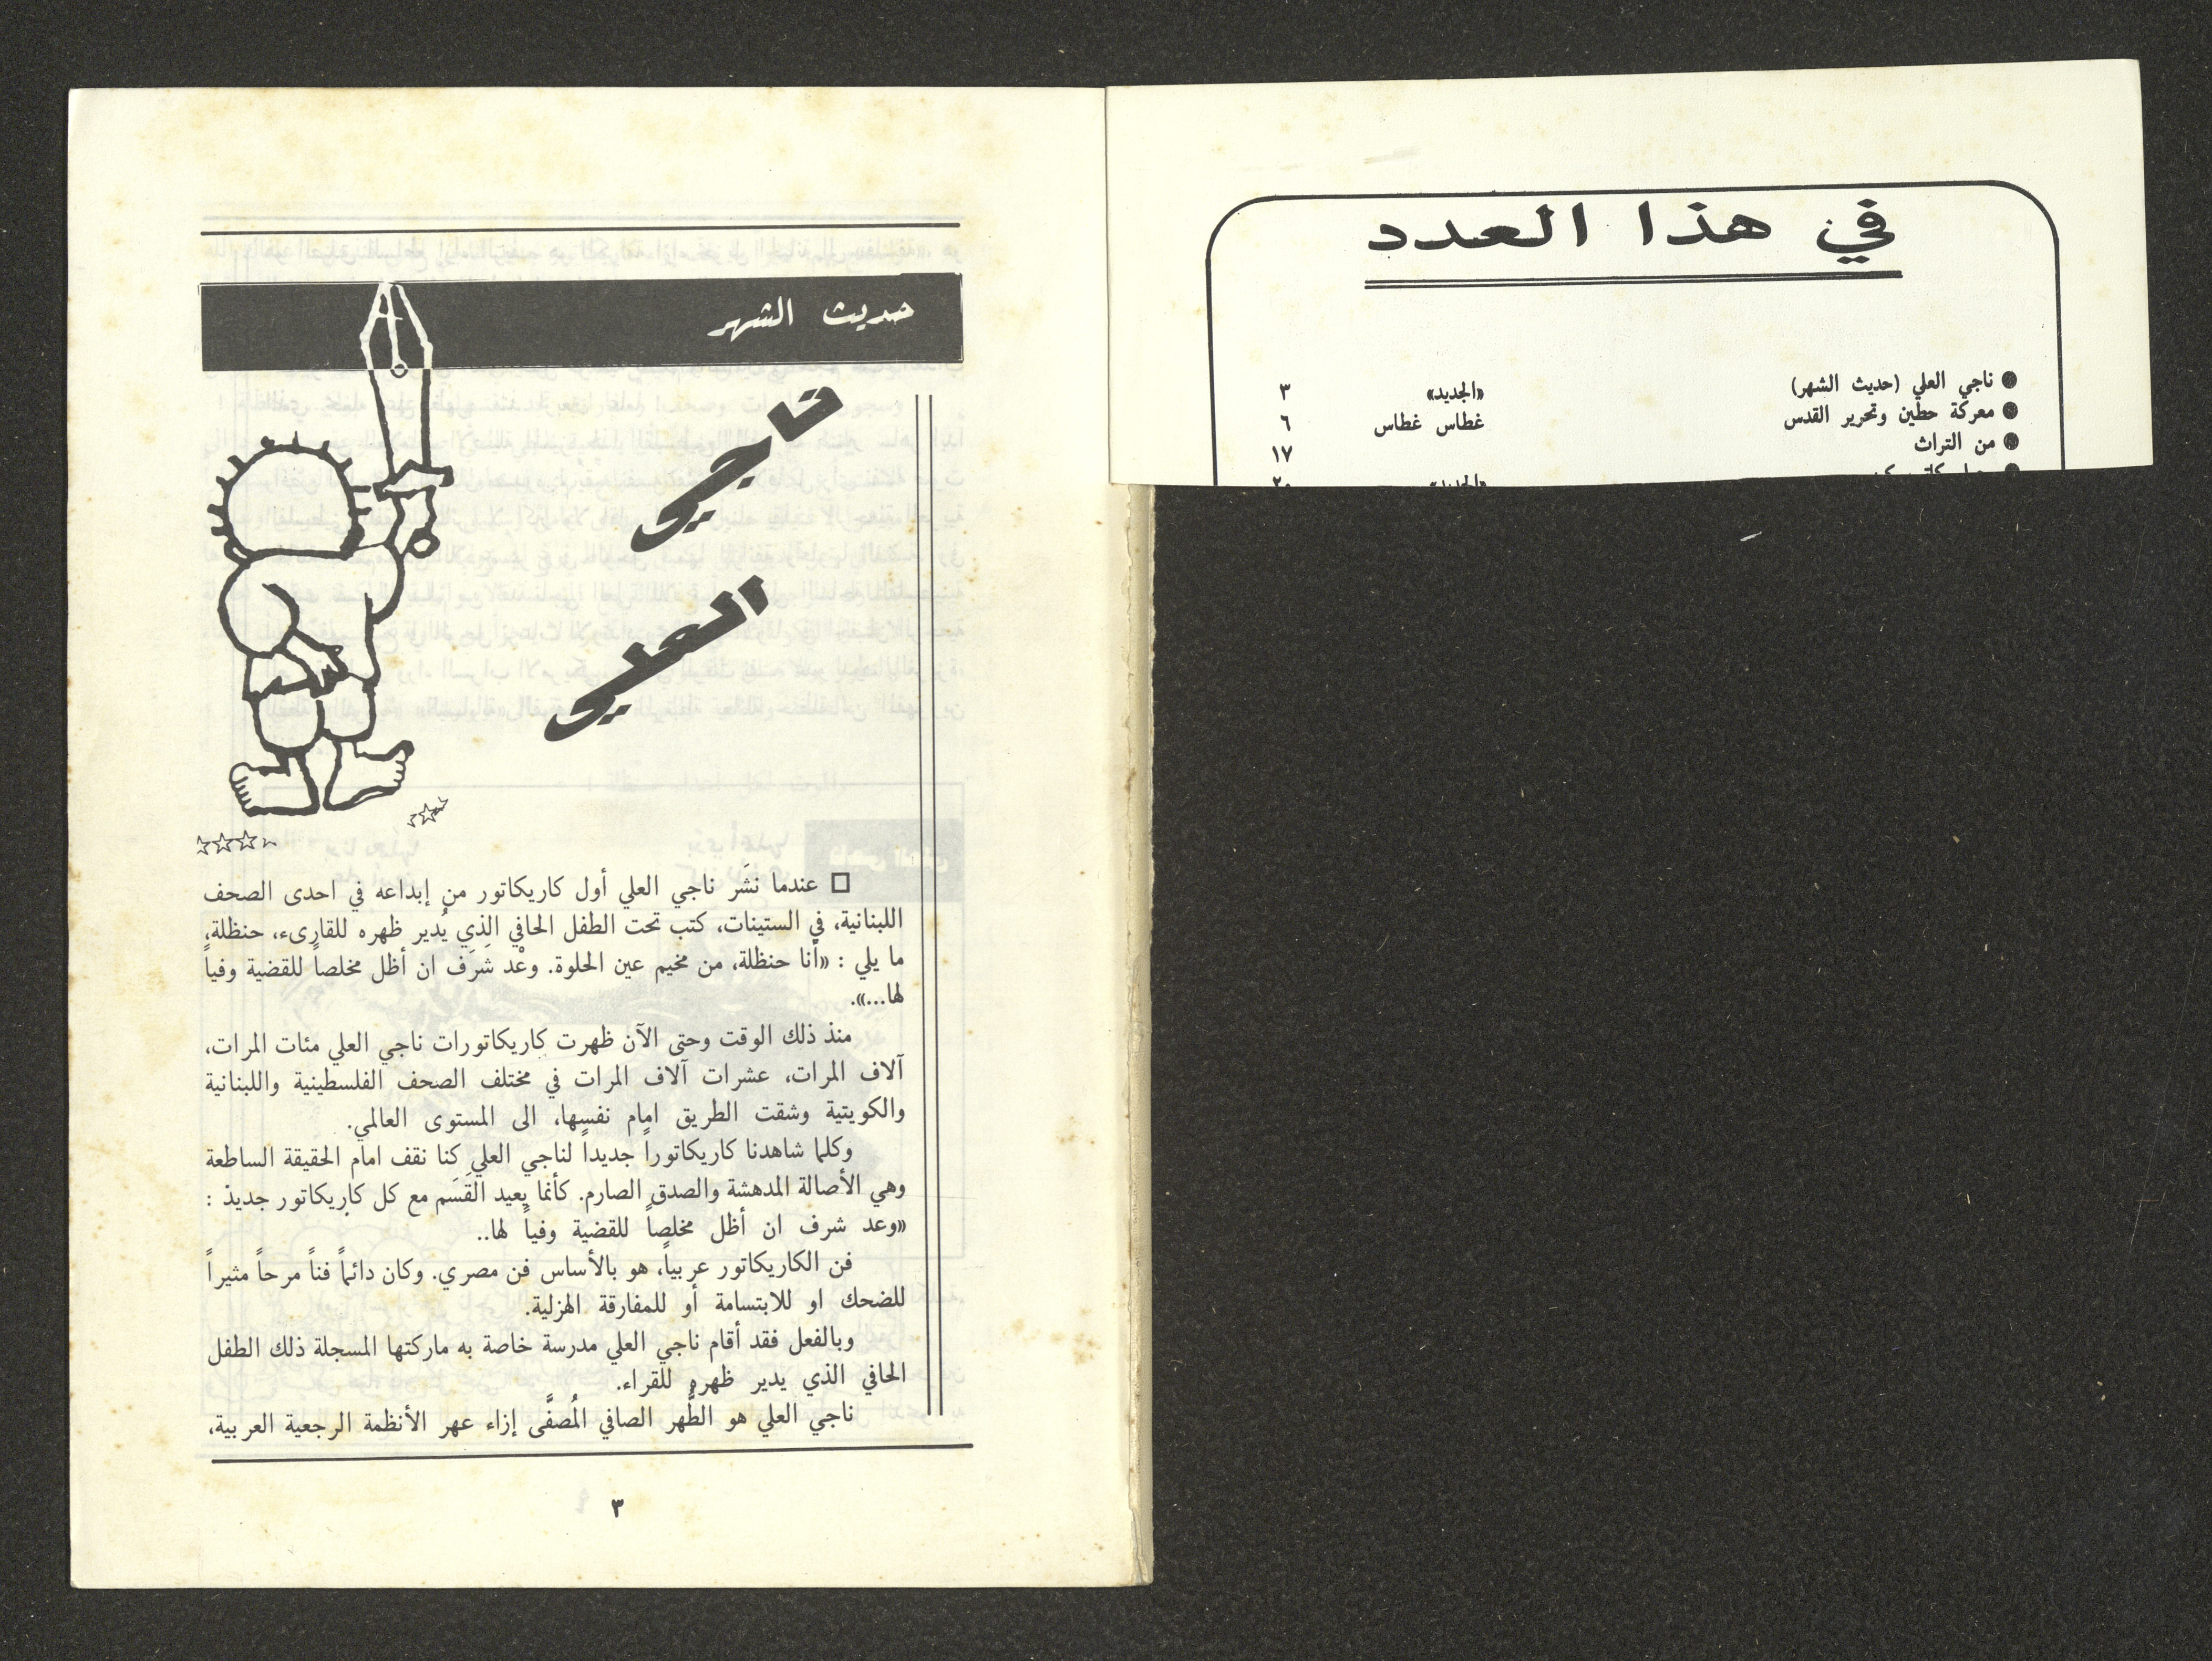 في هذا العدد
● ناجي العلي (حديث الشهر) «الجديد» ٣
● معركة حطين وتحرير القدس غطاس غطاس ٦
● من التراث ١٧
«الجديد» ٢٠
حديث الشهر
ناجي
العلي
□ عندما نشَر ناجي العلي أول كاريكاتور من إبداعه في احدى الصحف
اللبنانية، في الستينات، كتب تحت الطفل الحافي الذي يُدير ظهره للقارىء، حنظلة،
ما يلي : «أنا حنظلة، من مخيم عين الحلوة. وعْد شَرَف ان أظل مخلصاً للقضية وفياً
لها...».
منذ ذلك الوقت وحتى الآن ظهرت كاريكاتورات ناجي العلي مئات المرات،
آلاف المرات، عشرات آلاف المرات في مختلف الصحف الفلسطينية واللبنانية
والكويتية وشقت الطريق امام نفسها، الى المستوى العالمي.
وكلما شاهدنا كاريكاتوراً جديداً لناجي العلي كنا نقف امام الحقيقة الساطعة
وهي الأصالة المدهشة والصدق الصارم. كأنما يعيد القَسَم مع كل كاريكاتور جديذ :
«وعد شرف ان أظل مخلصاً للقضية وفياً لها..
فن الكاريكاتور عربياً، هو بالأساس فن مصري. وكان دائماً فناً مرحاً مثيراً
للضحك او للابتسامة أو للمفارقة الهزلية.
وبالفعل فقد أقام ناجي العلي مدرسة خاصة به ماركتها المسجلة ذلك الطفل
الحافي الذي يدير ظهره للقراء.
ناجي العلي هو الطُّهر الصافي المُصفَّى إزاء عهر الأنظمة الرجعية العربية،
٣